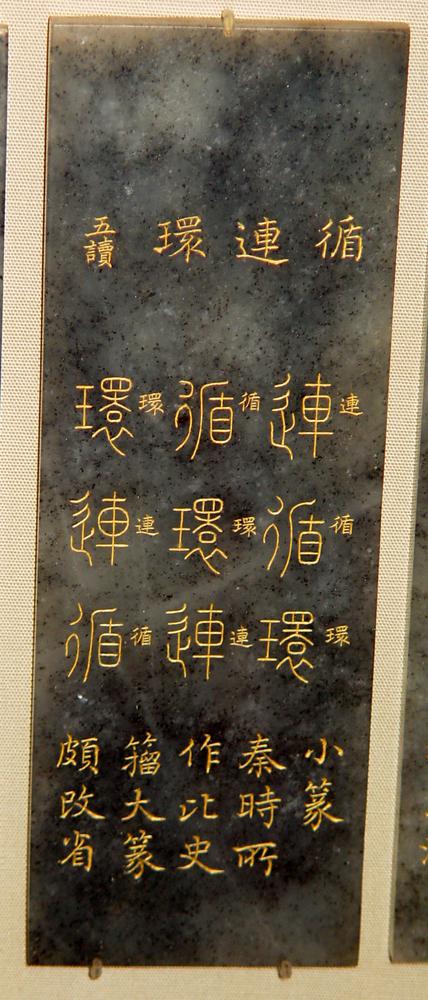 循連環
五讀
連循環
連循環
循環連
循環連
環連循
環連循
小篆
秦時所
作比史
籀大篆
頗改省